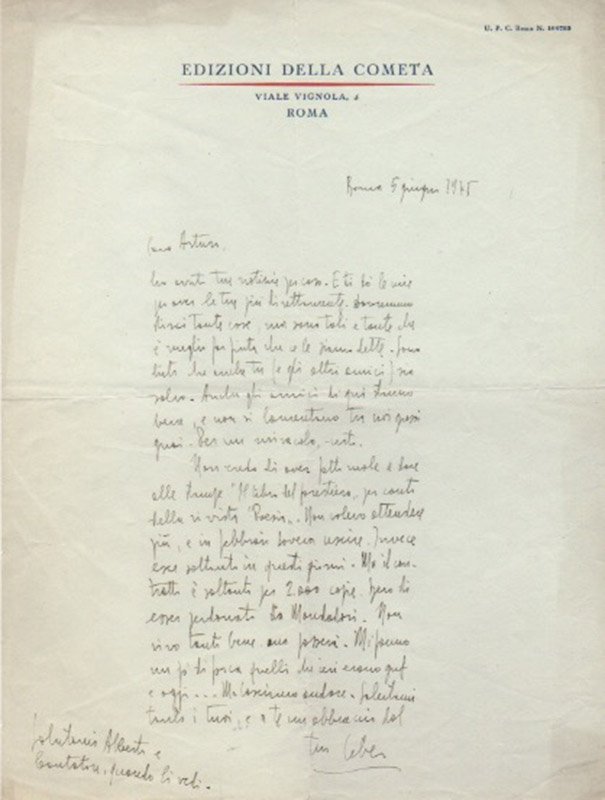 U. P. C. Roma N.
EDIZIONI DELLA COMETA
VIALE VIGNOLA, 4
ROMA
Roma 5 giugno 1945
Caro Arturo,
ho avuto tue notizie per caso. E ti do le mie
per aver le tue più direttamente. Dovremmo
dirci tante cose, ma sono tali e tante che
è meglio far finta che ce le siamo dette. Sono
lieto che anche tu (e gli altri amici) sia
salvo. Anche gli amici di qui stanno
bene, e non si lamentano tra nos
guai. Per un miracolo, certo.
Non credo di aver fatto male a dare
alle stampe "Il del forestiero", per conto
della rivista "Poesia". Non volevo attendere
più, e in febbraio doveva uscire. Invece
esce soltanto in questi giorni. Ma il con-
tratto è soltanto per 2.000 copie. Spero di
esser perdonato da Mondadori. Non
vivo tanto bene Mi fanno
un pò di fosca quelli che ieri erano guf
e oggi... Ma lasciamo andare. Salutami
tanto i tuoi, e a te un abbraccio dal
tuo Libero
Salutami Alberto e
Cantatore, quando li vedi.